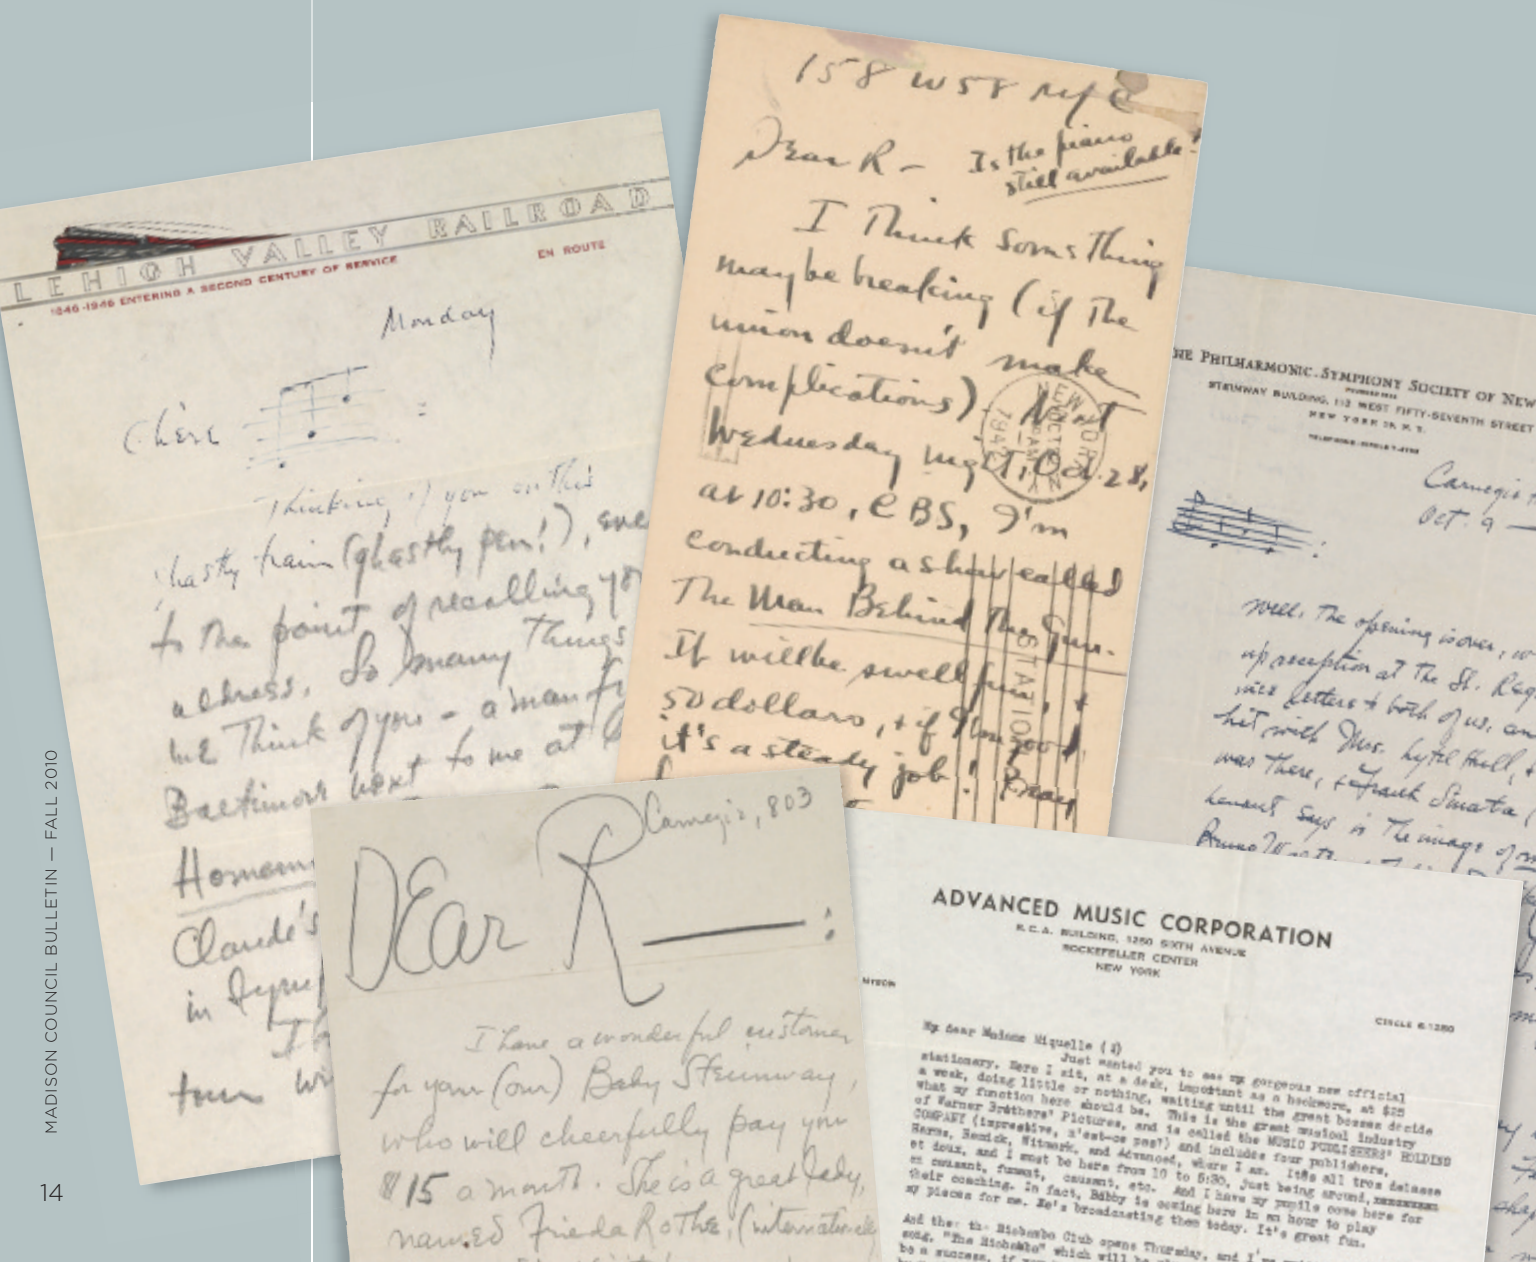 LEHIGH VALLEY RAILROAD
1846-1946 ENTERING A SECOND CENTURY OF SERVICE
EN ROUTE
Monday
Chère
:
Thinking of you on this
ghastly train (ghastly pen!), even
to the point of recalling your
address. So many things
we think of you – a man fr
Baltimore next to me at
Homem
Claude's
in
tun wi
158 W 58 NYC
Dear R – Is the piano
still available?
I Think Something
may be breaking (if the
union doesn't make
complications). Next
Wednesday mgt, Oct. 28,
at 10:30, CBS, I'm
conducting a show called
The Man Behind The Gun.
It will be swell fun, +
50 dollars, + if I'm good
it's a steady job! Pray
NEW YORK
OCT
1942
STATION
THE PHILHARMONIC-SYMPHONY SOCIETY OF NEW
STEINWAY BUILDING, 113 WEST FIFTY-SEVENTH STREET
NEW YORK 19, N. Y.
Carnegie
Oct. 9 –
:
Well, the opening is over, w
up reception at the St. Reg
nice letters to both of us, an
hit with Mrs. Lytle Hull, +
was there, + Frank Sinatra (
says is the image of m
Bruno Walter
Carnegie, 803
DEar R— :
I have a wonderful customer
for your (our) Baby Steinway,
who will cheerfully pay you
$15 a month. She is a great lady,
named Frieda Rothe, (international
ADVANCED MUSIC CORPORATION
R.C.A. BUILDING, 1250 SIXTH AVENUE
ROCKEFELLER CENTER
NEW YORK
CIRCLE 6-1280
My dear Madame Miquelle (!)
Just wanted you to see my gorgeous new official
stationary. Here I sit, at a desk, important as a bookworm, at $25
a week, doing little or nothing, waiting until the great bosses decide
what my function here should be. This is the great musical industry
of Warner Brothers' Pictures, and is called the MUSIC PUBLISHERS' HOLDING
COMPANY (impressive, n'est-ce pas?) and includes four publishers,
Harms, Remick, Witmark, and Advanced, where I am. It's all tres delasse
et doux, and I must be here from 10 to 5:30, just being around, xxxxxxxxx
en causant, fumant, causant, etc. And I have my pupils come here for
their coaching. In fact, Bobby is coming here in an hour to play
my pieces for me. He's broadcasting them today. It's great fun.
And then the Riobamba Club opens Thursday, and I'
song, "The Riobamba" which will be
be a success, if
MADISON COUNCIL BULLETIN — FALL 2010
14